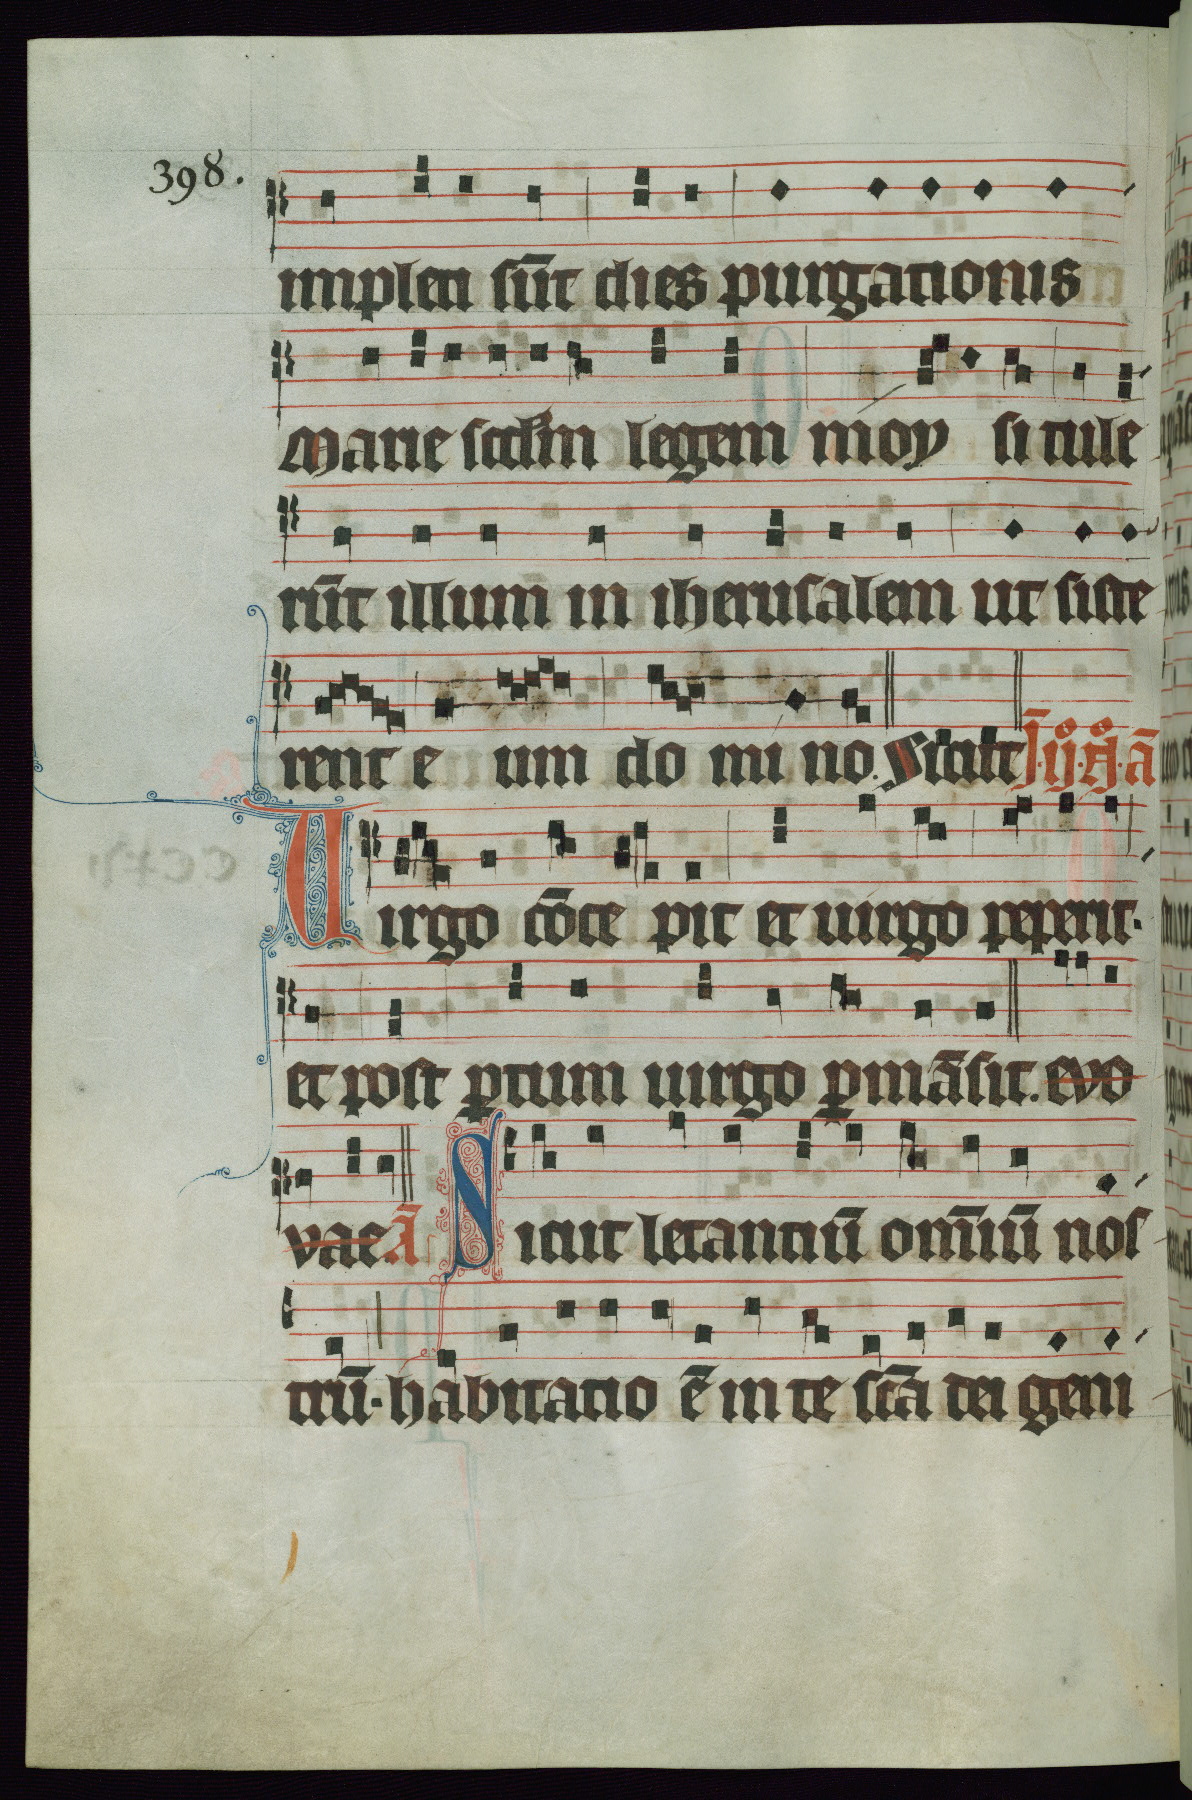 398.
impleti sūt dies purgationis
Marie scdm̄ legem moy si tule
rūt illum in iherusalem ut siste
rent e um do mi no. Sicut
Uirgo cōce pit et uirgo peperit.
et post ꝑtum uirgo ꝑmāsit. evo
vae Ā Sicut letantiū om̄iū nos
trū. habitatio ē in te scā dei geni